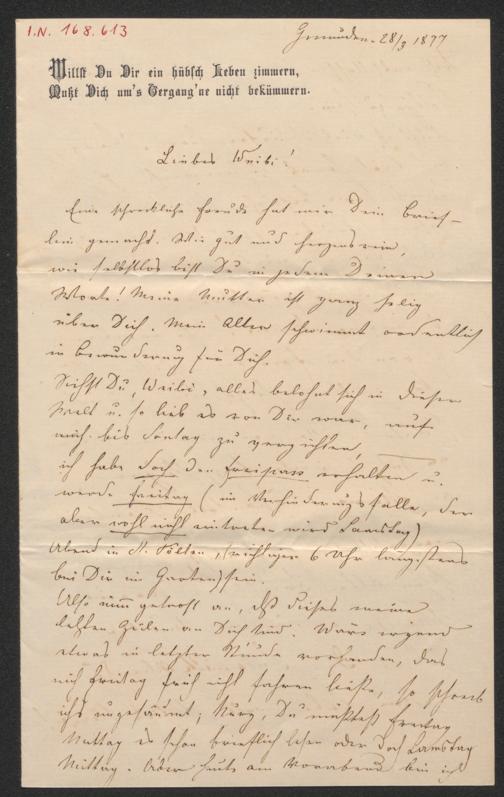 I.N. 168.613
Gmunden. 28/3 1877
Willst Du Dir ein hübsch Leben zimmern,
Mußt Dich um's Vergang'ne nicht bekümmern.
Liebes Weibi!
Eine schreckliche Freude hat mir Dein Brief-
lein gemacht. Wie gut und herzensrein,
wie selbstlos bist Du in jedem Deiner
Worte! Meine Mutter ist ganz selig
über Dich. Mein Alter schwimmt ordentlich
in Bewunderung für Dich.
Siehst Du, Weibi, alles belohnt sich in dieser
Welt u. so lieb es von Dir war, auf
mich bis Sontag zu verzichten,
ich habe doch den Freipass erhalten u.
werde Freitag (im Verhinderungsfalle, der
aber wohl nicht eintreten wird Samstag)
Abend in St. Pölten, 6 Uhr längstens
bei Dir im Garten sein.
Also nimm getrost an, dß dieses meine
letzten Zeilen an Dich sind. Wäre irgend
etwas in letzter Stunde vorhanden, das
mich Freitag früh nicht fahren ließe, so schreib
ichs ungesäumt; kurz, Du müßtest Freitag
Mittag es schon brieflich lesen oder doch Samstag
Mittag. Aber heute am Vorabend bin ich